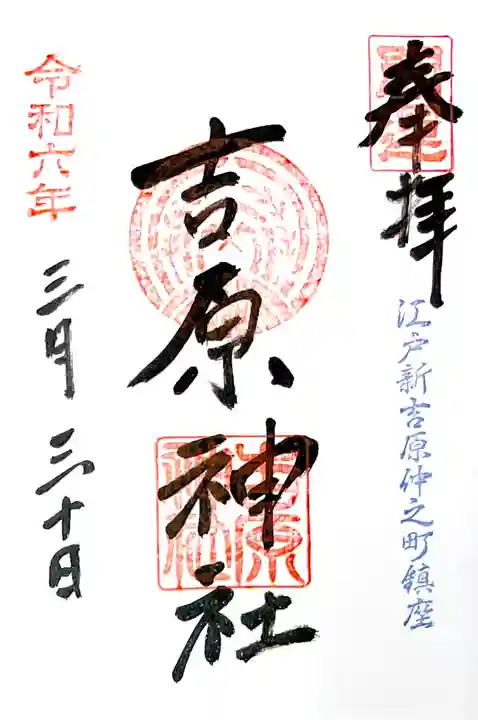 奉拝
江戸新吉原仲之町鎮座
吉原神社
令和六年
三月三十日